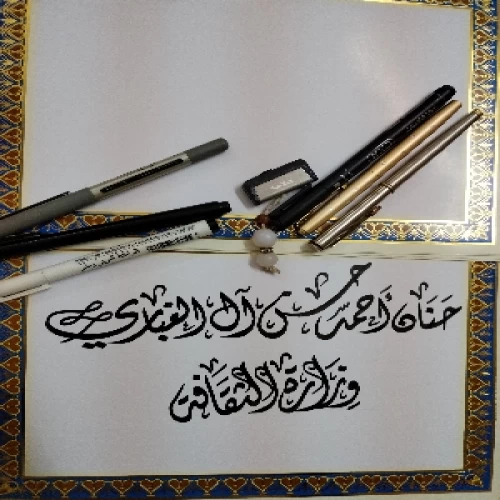 حنان أحمد حسن آل الغباري
وزارة الثقافة